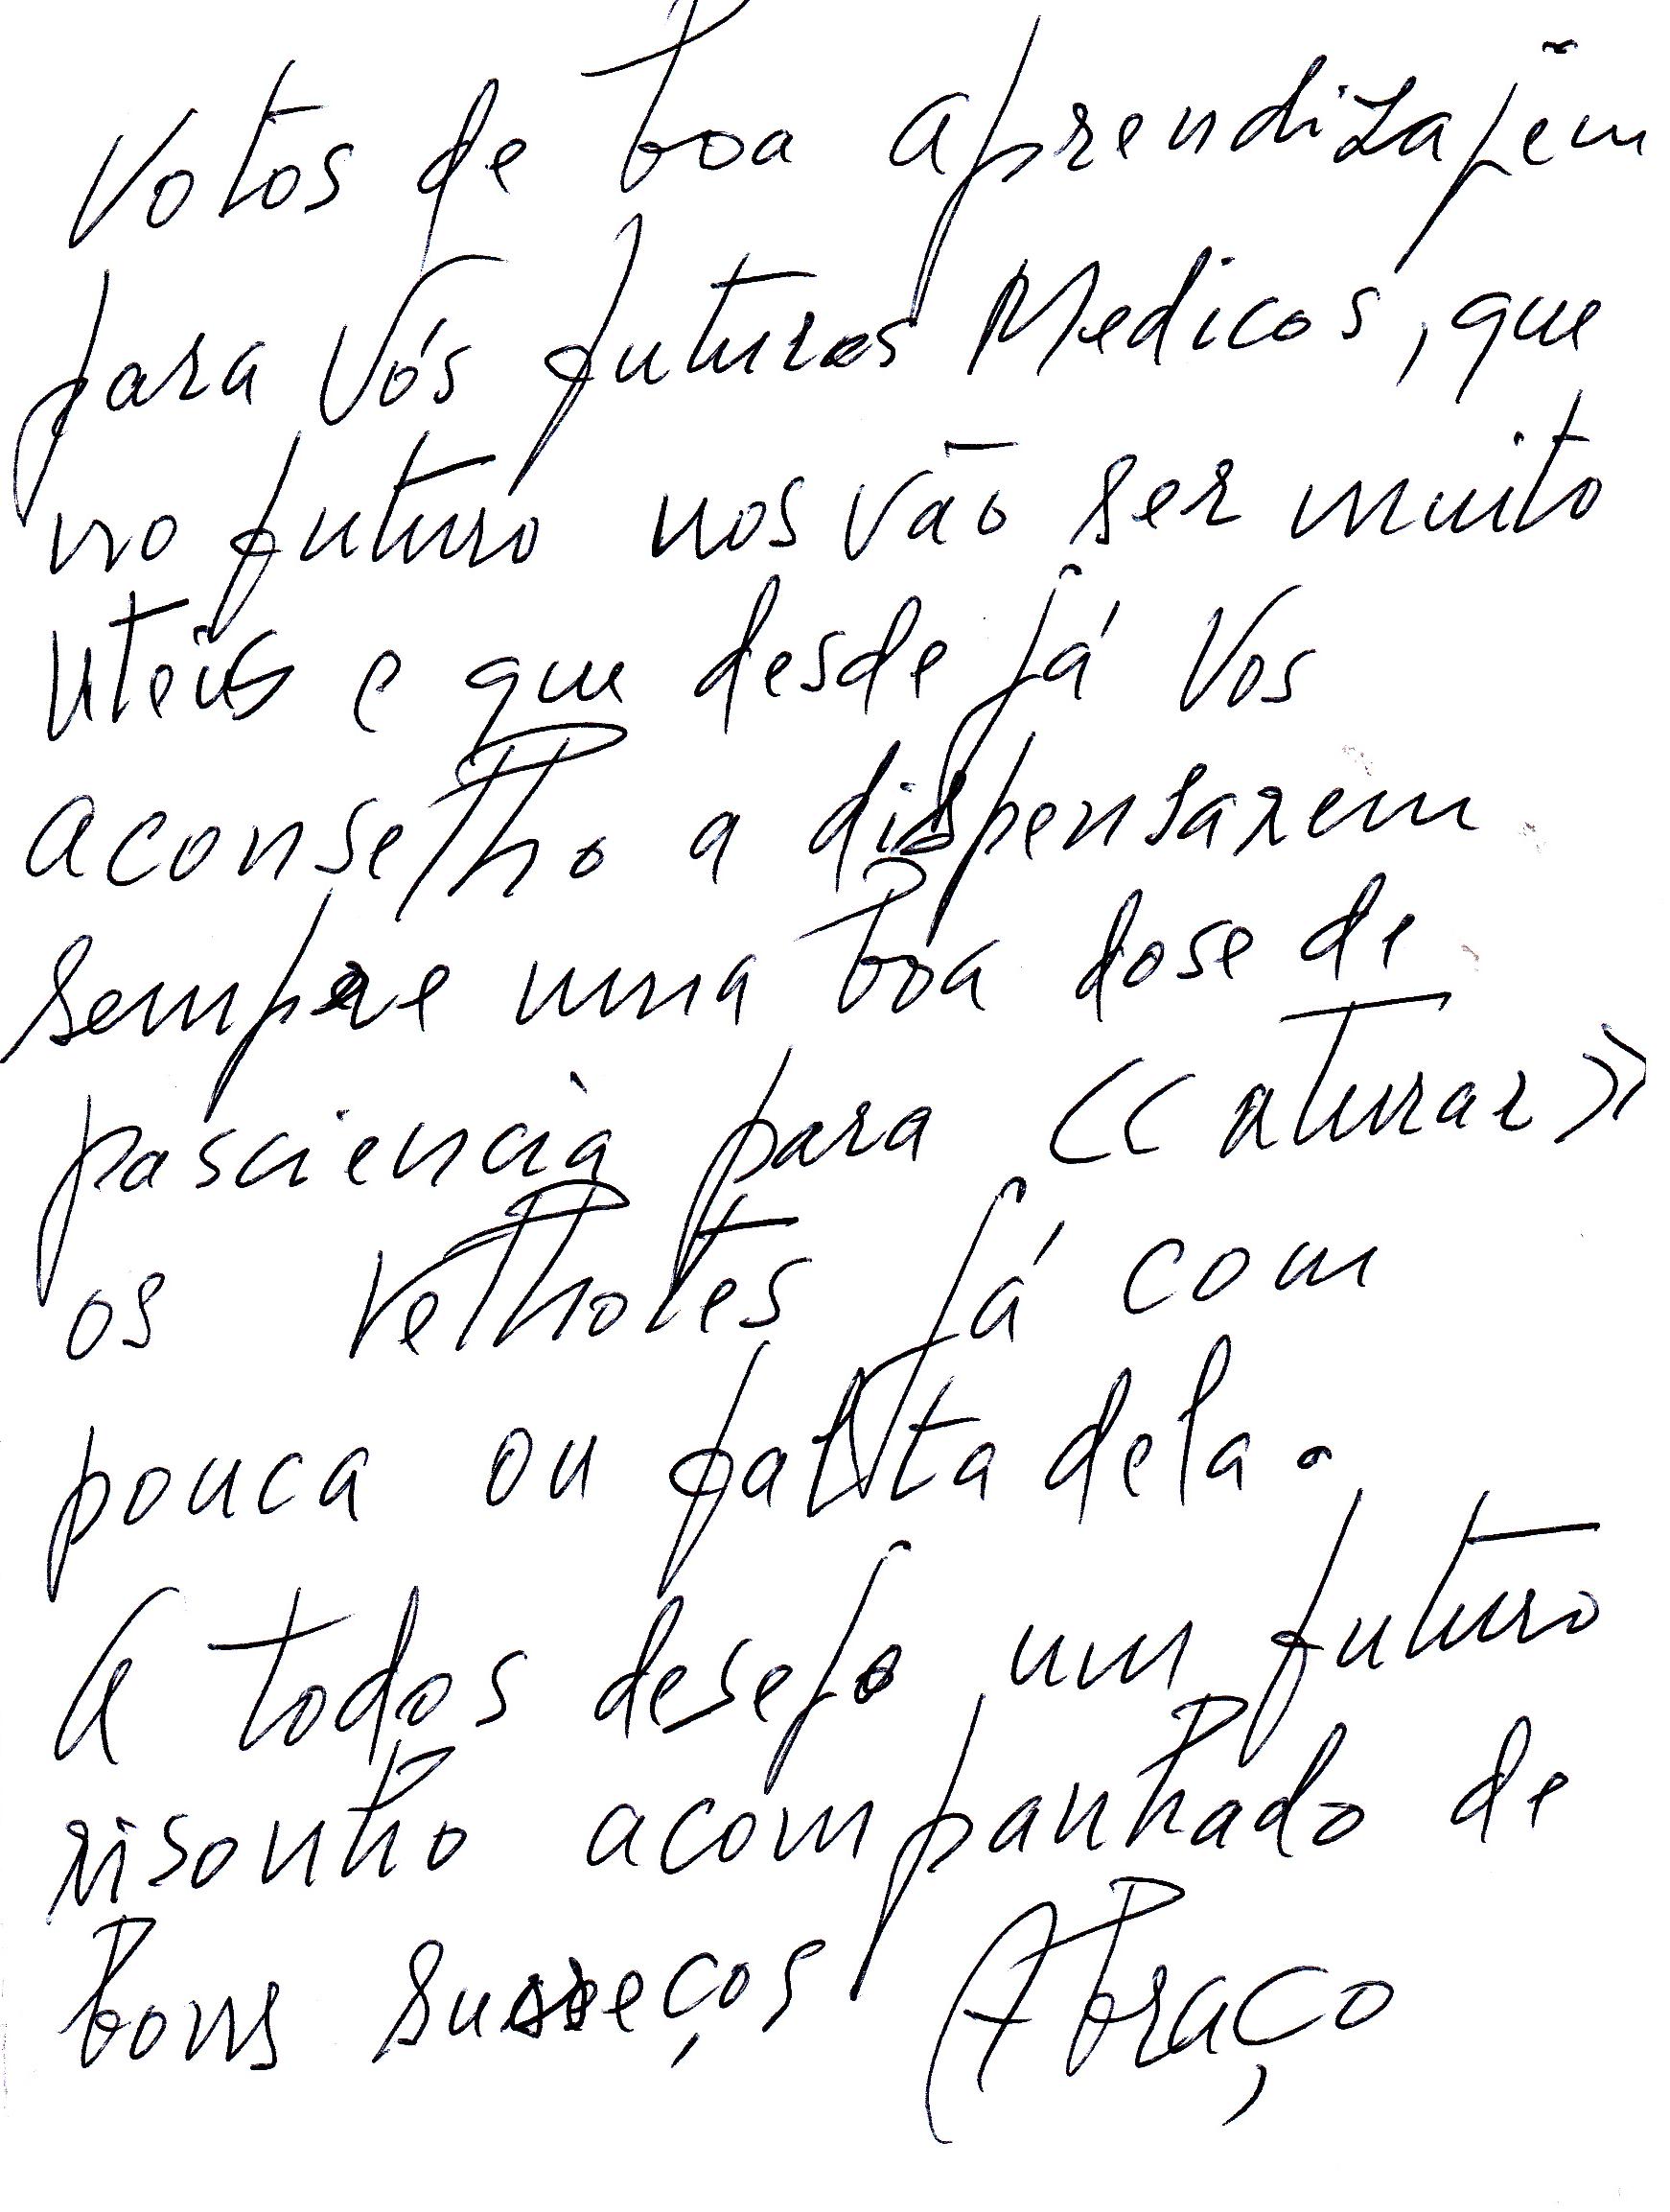 Votos de boa aprendizajem
para Vós futuros Medicos, que
no futuro nos vão ser muito
uteis e que desde já Vos
aconselho a dispensarem
sempre uma boa dose de
pasciência para ((aturar))
os velhotes já com
pouca ou falta dela.
A todos desejo um futuro
risonho acompanhado de
bons suceços Abraço